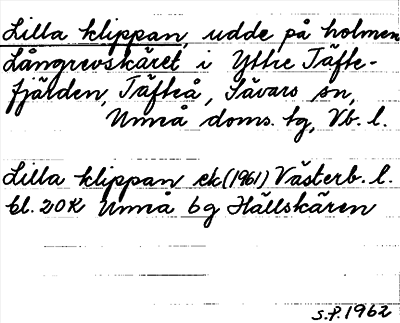 Lilla klippan, udde på holmen
Långrevskäret i Yttre Täfte-
fjärden, Täfteå, Sävars sn,
Umeå doms. tg, Vb. l.
Lilla klippan ek (1961) Västerb. l.
bl. 20K Umeå bg Hällskären
S.P. 1962